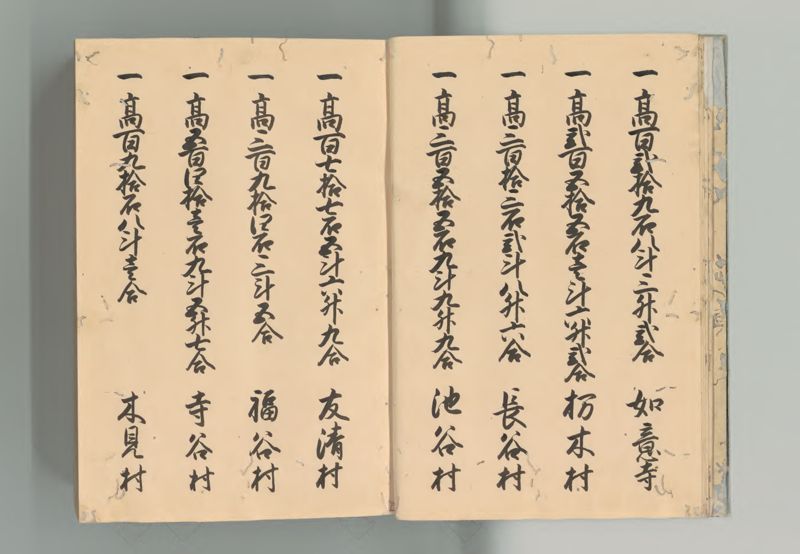 一高百弐拾九石八斗三升弐合 如意寺
一高弐百五拾五石壱斗六升弐合 栃木村
一高三百拾三石弐斗八升六合 長谷村
一高三百五拾五石九斗九升九合 池谷村
一高百七拾七石五斗六升九合 友清村
一高三百九拾四石三斗五合 福谷村
一高五百四拾壱石九斗五升七合 寺谷村
一高百九拾石八斗壱合 木見村